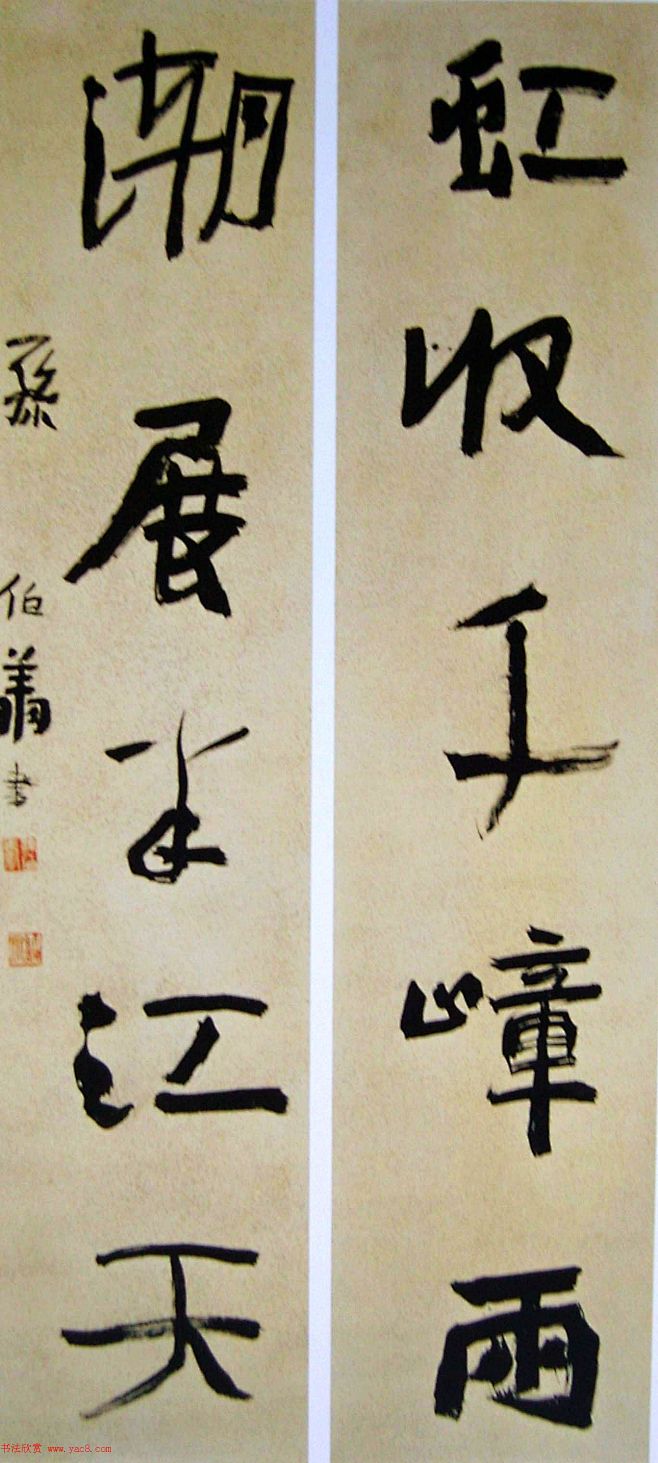 虹收千嶂雨
潮展半江天
孫伯翔書
书法欣赏 www.yac8.com